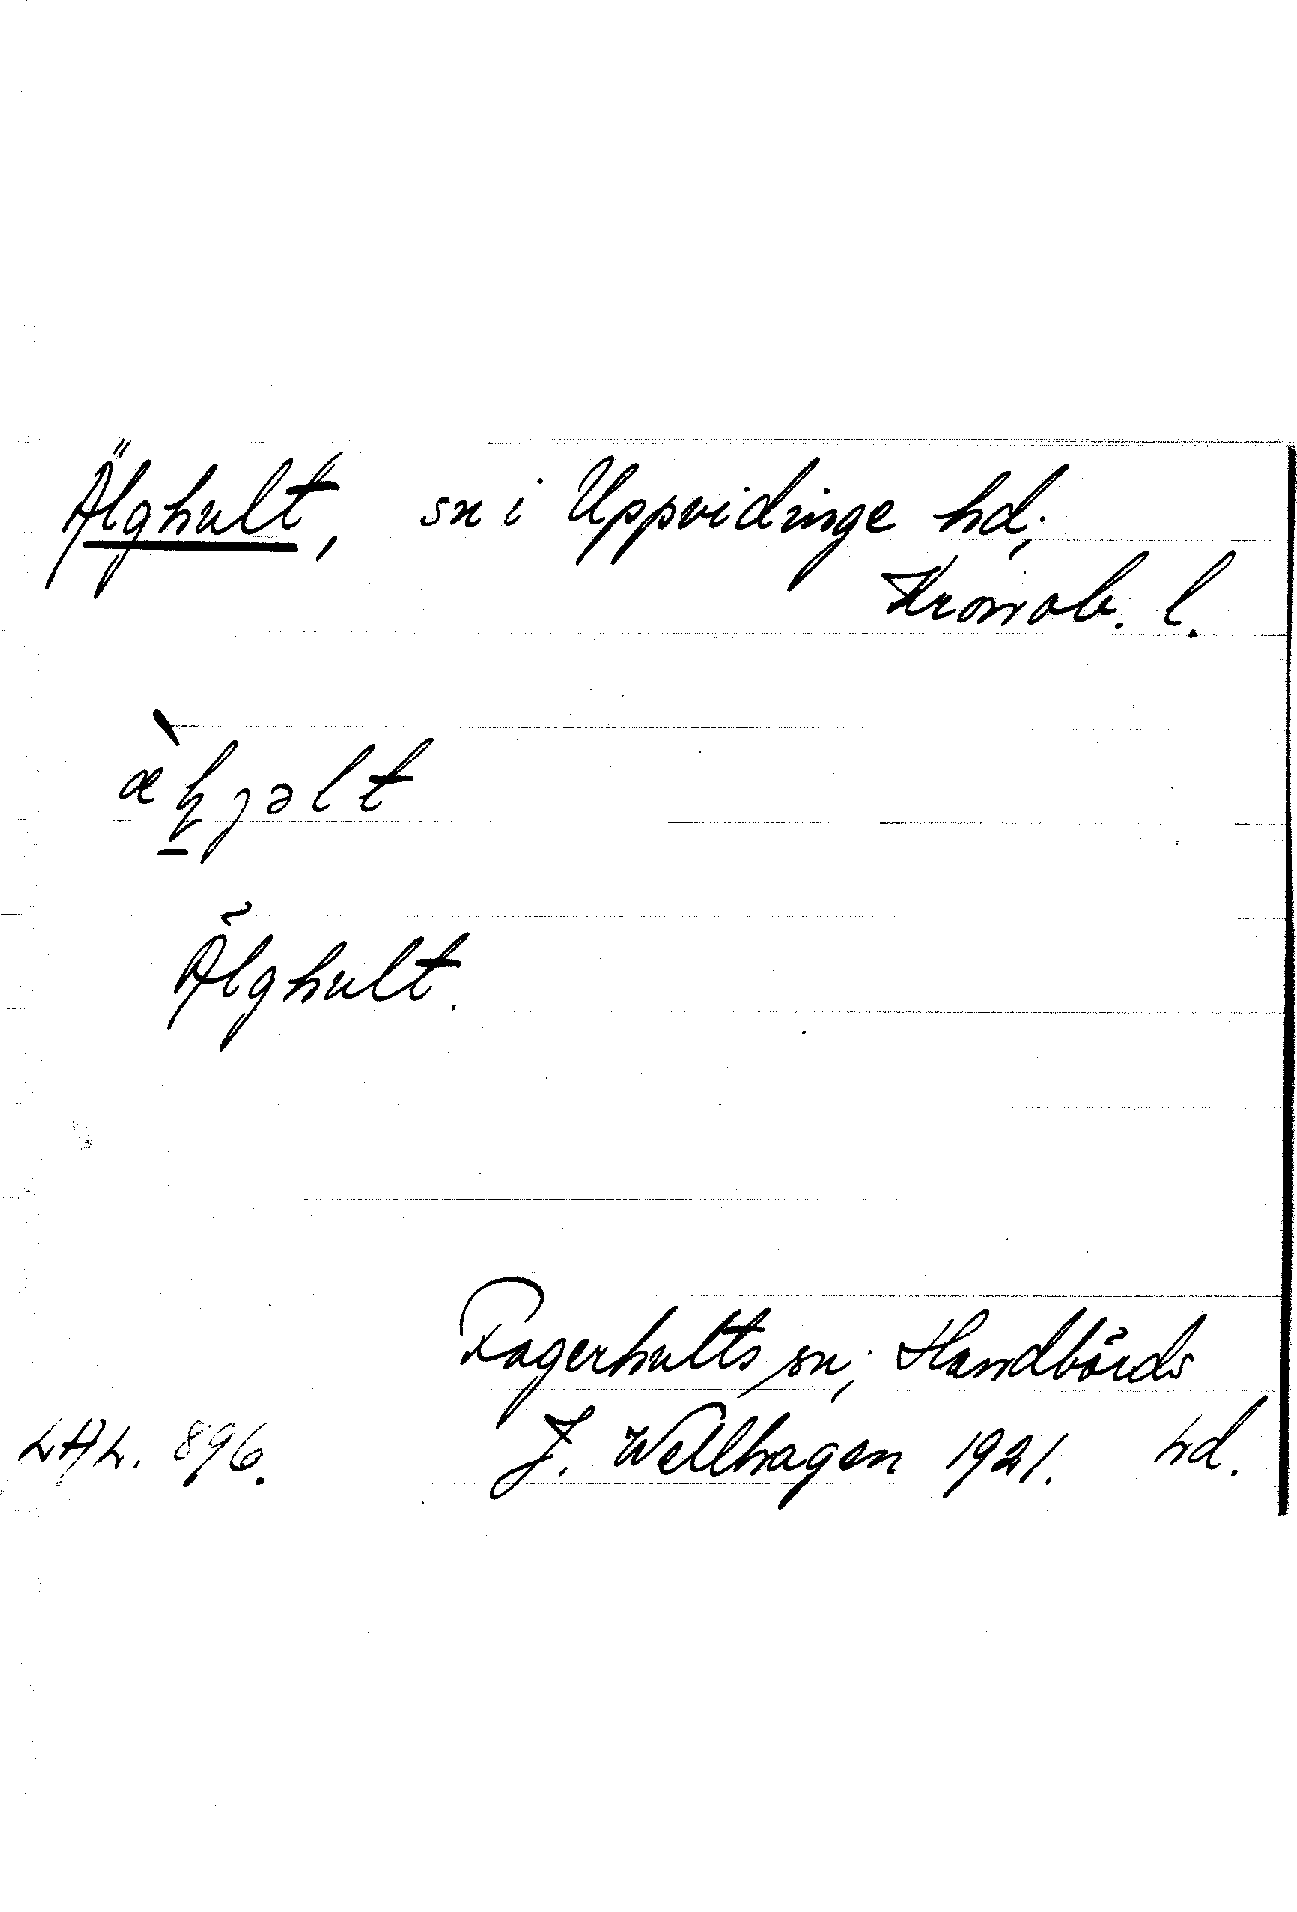 Älghult, sn i Uppvidinge hd,
Kronob. l.
Älghult.
Fagerhults sn, Handbörds
LAL. 896. J. Wellhagen 1921. hd.